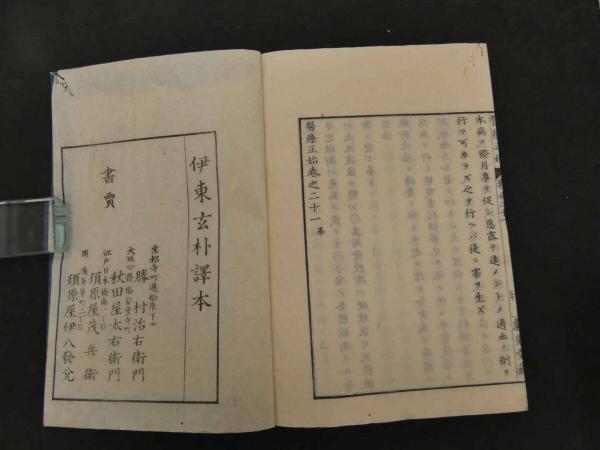 本病ノ際月事ヲ促シ惡露ヲ進メント〆通血ノ劑ヲ
行フ可カラズ之ヲ行ヘバ徒ニ害ヲ生ズ
醫療正始卷之二十一畢
伊東玄朴譯本
書賈
京都寺町通松原下ル
勝村治右衛門
大坂心齋橋安堂寺町
秋田屋太右衛門
江戸日本橋南一丁目
須原屋茂兵衛
同淺草茅町二丁目
須原屋伊八發兌